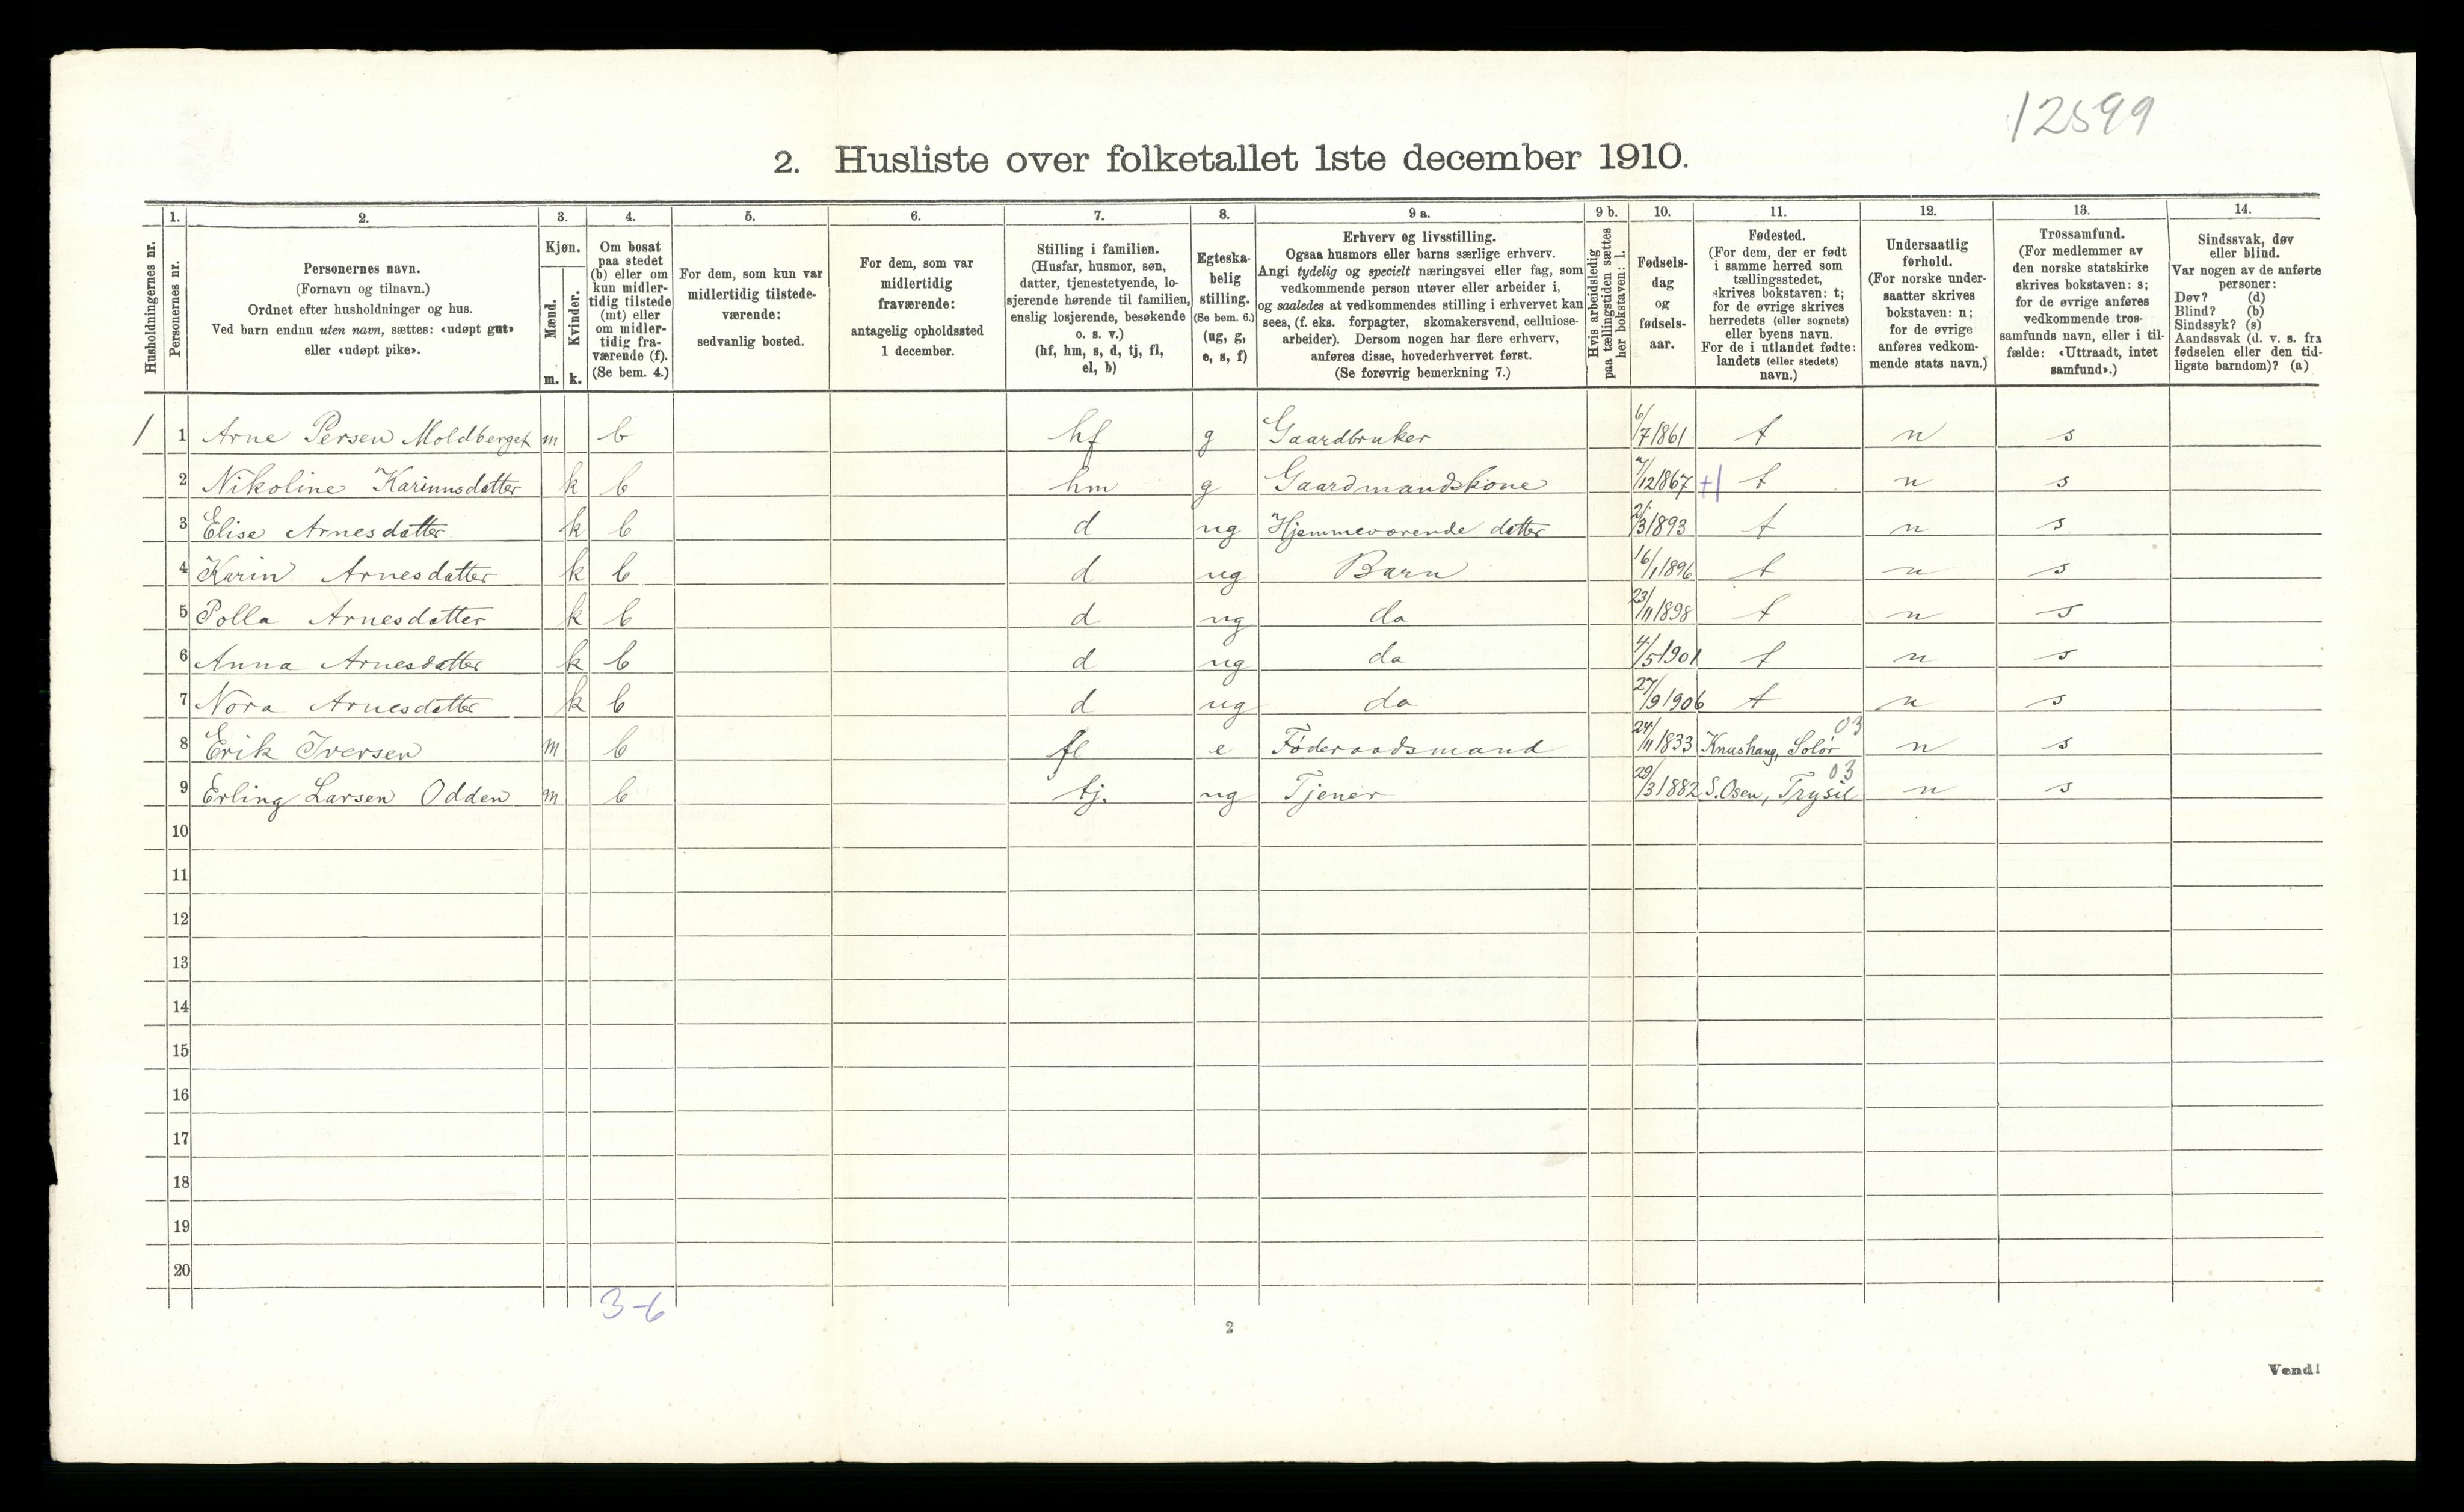 12599
2. Husliste over folketallet 1ste december 1910.
Husholdningernes nr.
1. Personernes nr.
2. Personernes navn.
(Fornavn og tilnavn.)
Ordnet efter husholdninger og hus.
Ved barn endnu uten navn, sættes: «udøpt gut»
eller «udøpt pike».
3. Kjøn.
Mænd. m.
Kvinder. k.
4. Om bosat
paa stedet
(b) eller om
kun midler-
tidig tilstede
(mt) eller
om midler-
tidig fra-
værende (f).
(Se bem. 4.)
5. For dem, som kun var
midlertidig tilstede-
værende:
sedvanlig bosted.
6. For dem, som var
midlertidig
fraværende:
antagelig opholdssted
1 december.
7. Stilling i familien.
(Husfar, husmor, søn,
datter, tjenestetyende, lo-
sjerende hørende til familien,
enslig losjerende, besøkende
o. s. v.)
(hf, hm, s, d, tj, fl,
el, b)
8. Egteska-
belig
stilling.
(Se bem. 6.)
(ug, g,
e, s, f)
9 a. Erhverv og livsstilling.
Ogsaa husmors eller barns særlige erhverv.
Angi tydelig og specielt næringsvei eller fag, som
vedkommende person utøver eller arbeider i,
og saaledes at vedkommendes stilling i erhvervet kan
sees, (f. eks. forpagter, skomakersvend, cellulose-
arbeider). Dersom nogen har flere erhverv,
anføres disse, hovederhvervet først.
(Se forøvrig bemerkning 7.)
9 b. Hvis arbeidsledig
paa tællingstiden sættes
her bokstaven: l.
10. Fødsels-
dag
og
fødsels-
aar.
11. Fødested.
(For dem, der er født
i samme herred som
tællingsstedet,
skrives bokstaven: t;
for de øvrige skrives
herredets (eller sognets)
eller byens navn.
For de i utlandet fødte:
landets (eller stedets)
navn.)
12. Undersaatlig
forhold.
(For norske under-
saatter skrives
bokstaven: n;
for de øvrige
anføres vedkom-
mende stats navn.)
13. Trossamfund.
(For medlemmer av
den norske statskirke
skrives bokstaven: s;
for de øvrige anføres
vedkommende tros-
samfunds navn, eller i til-
fælde: «Uttraadt, intet
samfund».)
14. Sindssvak, døv
eller blind.
Var nogen av de anførte
personer:
Døv? (d)
Blind? (b)
Sindssyk? (s)
Aandssvak (d. v. s. fra
fødselen eller den tid-
ligste barndom)? (a)
1 1 Arne Persen Moldberget m b hf g Gaardbruker 6/7 1861 t n s
2 Nikoline Karinusdatter k b hm g Gaardmandskone 7/12 1867 +1 t n s
3 Elise Arnesdatter k b d ug Hjemmeværende datter 21/3 1893 t n s
4 Karin Arnesdatter k b d ug Barn 16/1 1896 t n s
5 Polla Arnesdatter k b d ug do 23/11 1898 t n s
6 Anna Arnesdatter k b d ug do 4/5 1901 t n s
7 Nora Arnesdatter k b d ug do 27/9 1906 t n s
8 Erik Iversen m b fl e Føderaadsmand 24/11 1833 Knushang, Solør 03 n s
9 Erling Larsen Odden m b tj. ug Tjener 29/3 1882 S. Osen, Trysil 03 n s
10
11
12
13
14
15
16
17
18
19
20
3-6
2
Vend!